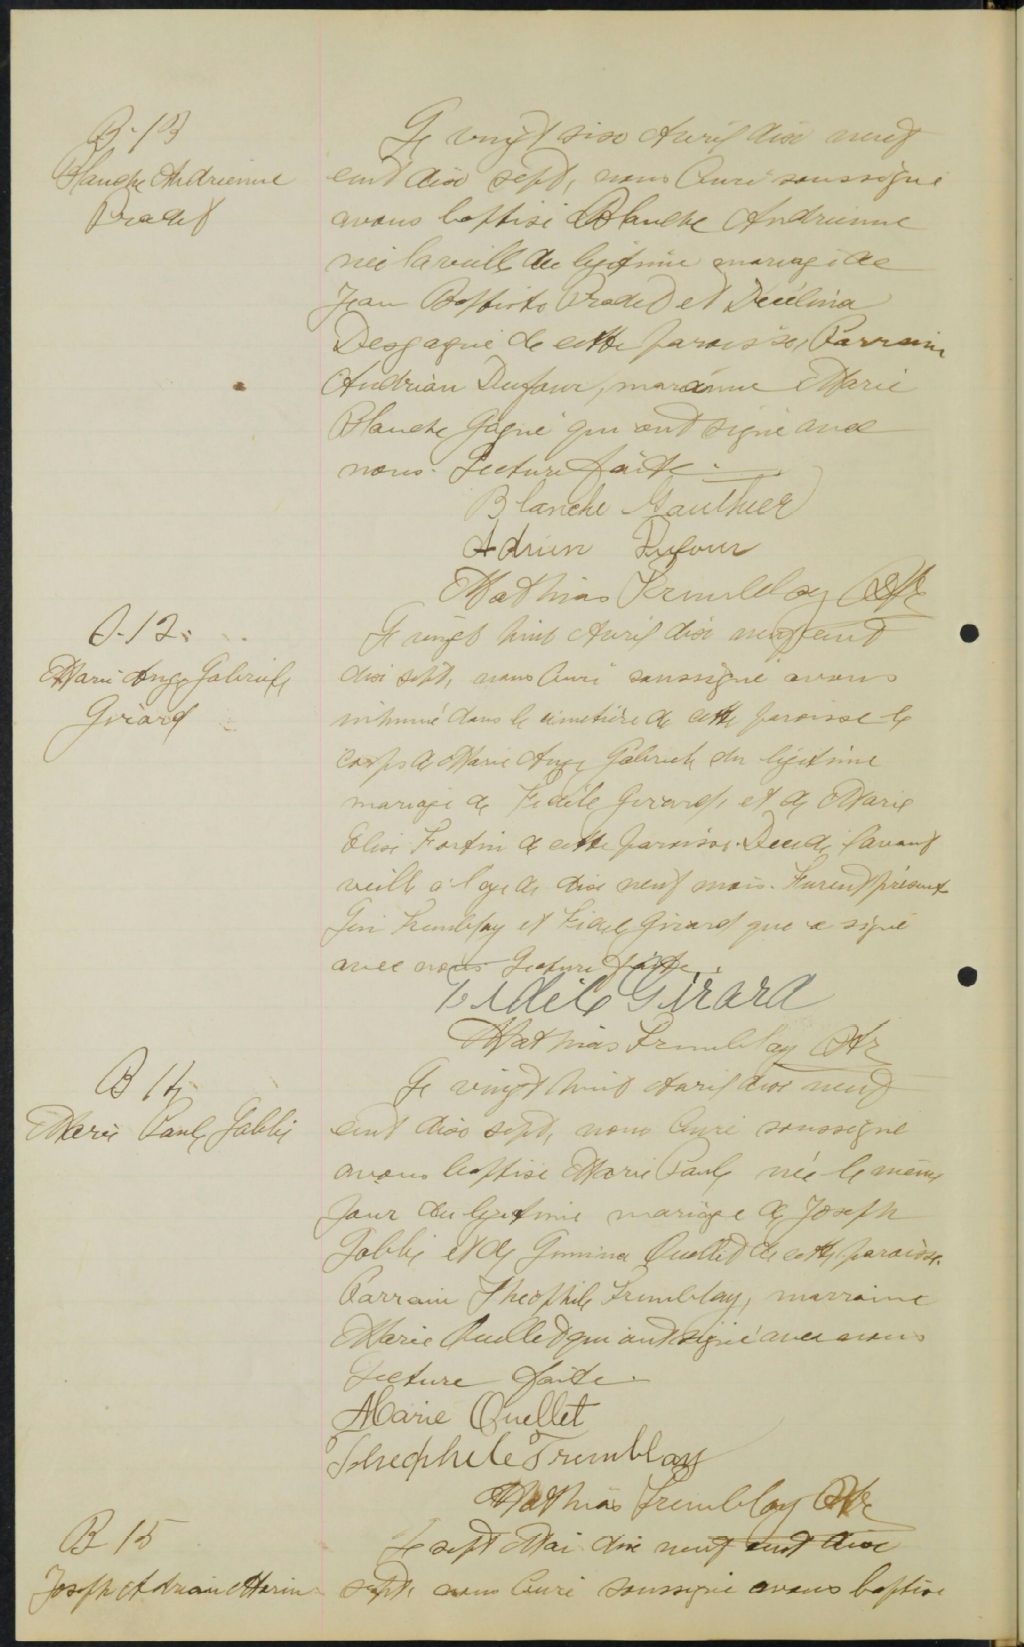 B-13
Blanche Andrienne
Pradet
Le vingt six Avril dix neuf
cent dix sept, nous Curé soussigné
avons baptisé Blanche Andrienne
née la veille du légitime mariage de
Jean Baptiste Pradet et Délina
Desgagné de cette paroisse, Parrain
Andrian Dufour, marainne Marie
Blanche Gagné qui ont signé avec
nous. Lecture faite.
Blanche Gauthier
Adrien Dufour
Mathias Tremblay Ptr
S-12.
Marie Ange Gabriele
Girard
Le vingt huit Avril dix neuf cent
dix sept, nous Curé soussigné avons
inhumé dans le cimetière de cette paroisse le
corps de Marie Ange Gabriele du légitime
mariage de Fidèle Girard, et de Marie
Elise Fortin de cette paroisse. Décédé l'avant
veille à l'age de dix neuf mois. Furent présent
Tremblay et Fidel Girard que a signé
avec nous Lecture faite.
Fidèle Girard
Mathias Tremblay Ptr
B 14
Marie Paule Gobbi
Le vingt huit Avril dix neuf
cent dix sept, nous Curé soussigné
avons baptisé Marie Paule née le même
jour du légitime mariage de Joseph
Gobbi et de Ouellet de cette paroisse.
Parrain Théophile Tremblay, marraine
Marie Ouellet qui ont signé avec nous
Lecture faite.
Marie Ouellet
Théophile Tremblay
Mathias Tremblay Ptr
B 15
Joseph Adrian Morin
Le sept Mai dix neuf cent dix
sept, nous Curé soussigné avons baptisé